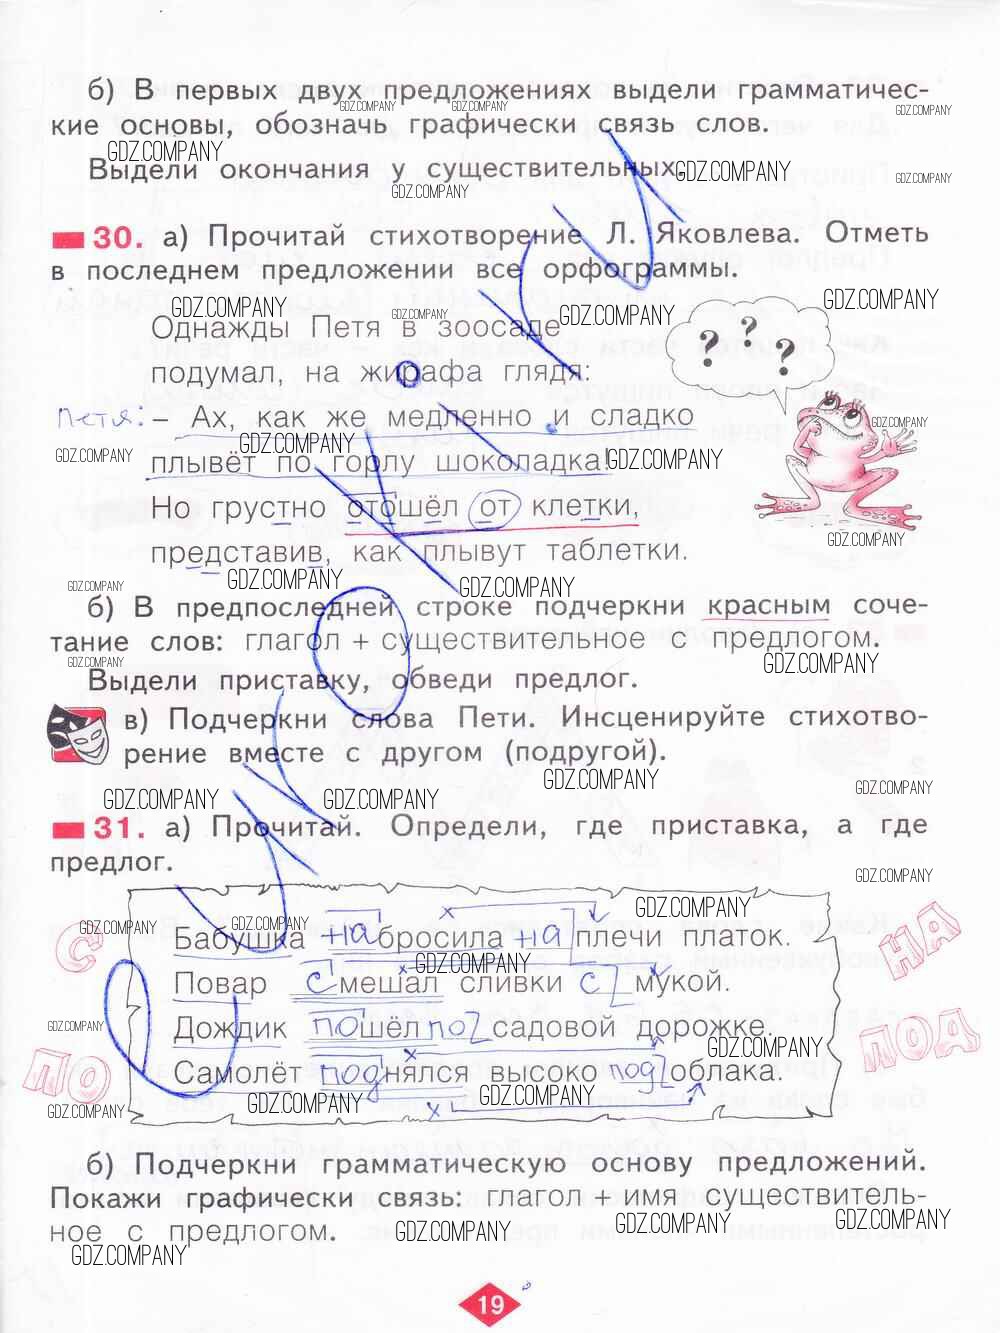 б) В первых двух предложениях выдели грамматичес-
кие основы, обозначь графически связь слов.
Выдели окончания у существительных.
30. а) Прочитай стихотворение Л. Яковлева. Отметь
в последнем предложении все орфограммы.
Однажды Петя в зоосаде
подумал, на жирафа глядя:
Петя: – Ах, как же медленно и сладко
плывёт по горлу шоколадка!
Но грустно отошёл от клетки,
представив, как плывут таблетки.
? ? ?
б) В предпоследней строке подчеркни красным соче-
тание слов: глагол + существительное с предлогом.
Выдели приставку, обведи предлог.
в) Подчеркни слова Пети. Инсценируйте стихотво-
рение вместе с другом (подругой).
31. а) Прочитай. Определи, где приставка, а где
предлог.
С
ПО
НА
ПОД
Бабушка набросила на плечи платок.
Повар смешал сливки с мукой.
Дождик пошёл по садовой дорожке.
Самолёт поднялся высоко под облака.
б) Подчеркни грамматическую основу предложений.
Покажи графически связь: глагол + имя существитель-
ное с предлогом.
19
GDZ.COMPANY